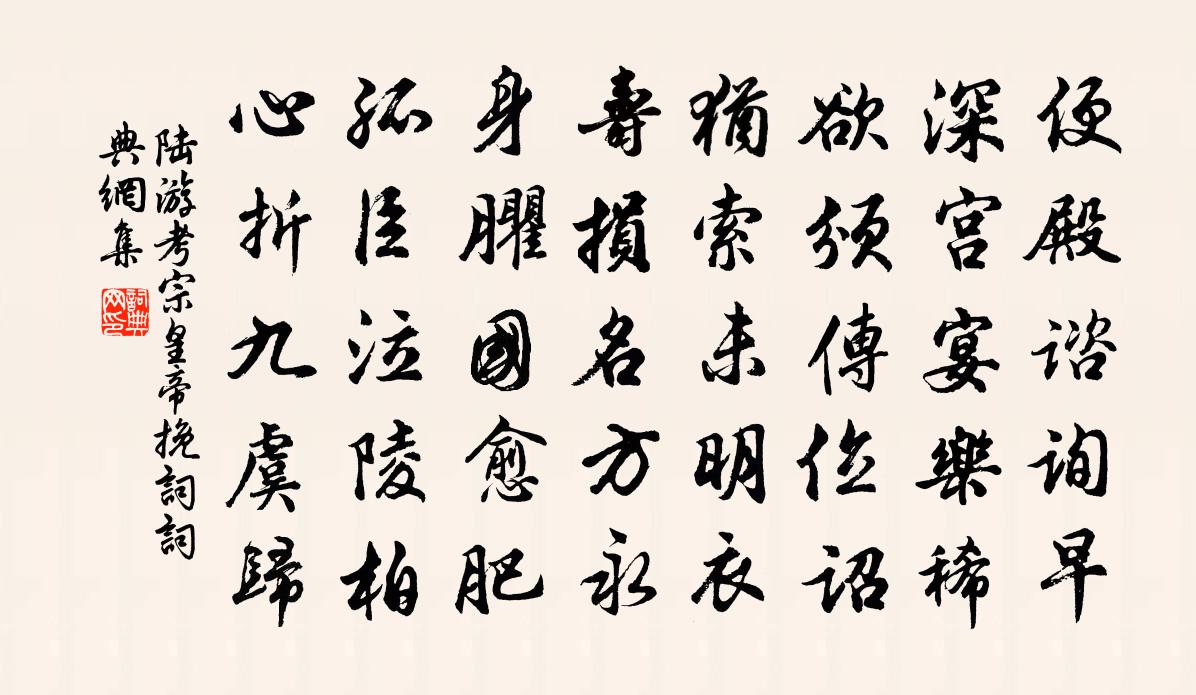 便殿諮詢早
深宮宴樂稀
欲頒傳位詔
猶索未明衣
壽損名方永
身臞國愈肥
孤臣泣陵柏
心折九虞歸
陸游孝宗皇帝挽詞詞
典網集
詞典
网印